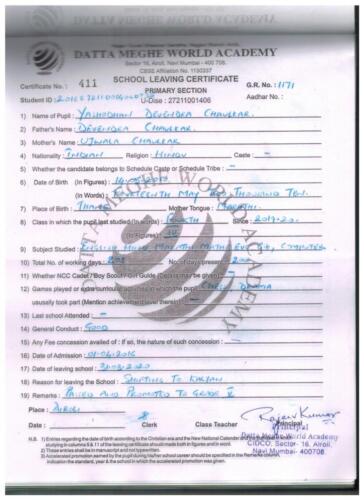 DATTA MEGHE WORLD ACADEMY
Sector 16, Airoli, Navi Mumbai - 400 708.
CBSE Affiliation No. 1130337
SCHOOL LEAVING CERTIFICATE
Certificate No. : 411 G.R. No. : 1171
PRIMARY SECTION
Student ID : U-Dise : 27211001406 Aadhar No. :
1) Name of Pupil : YASHODHAN DEVENDRA CHAVKAR.
2) Father's Name : DEVENDRA CHAVKAR.
3) Mother's Name : UJWALA CHAVKAR
4) Nationality : INDIAN Religion : HINDU Caste : -
5) Whether the candidate belongs to Schedule Caste or Schedule Tribe : -
6) Date of Birth (In Figures) :
(In Words) : FOURTEENTH MAY TWO THOUSAND TEN.
7) Place of Birth : THANE Mother Tongue : MARATHI.
8) Class in which the pupil last studied (In words) : FOURTH Since : 2019-20.
(In Figures) : IV
9) Subject Studied : ENGLISH HINDI MARATHI MATHS COMPUTER
10) Total No. of working days : No. of days present :
11) Whether NCC Cadet / Boy Scout / Girl Guide (Details may be given) : -
12) Games played or extra curricular activities in which the pupil DRAMA
ususally took part (Mention achievement level therein) : -
13) Last school Attended : -
14) General Conduct : GOOD
15) Any Fee concession availed of : If so, the nature of such concession : -
16) Date of Admission : 01-04-2016
17) Date of leaving school : 31/03/2020
18) Reason for leaving the School : SHIFTING TO KALYAN
19) Remarks : PASSED AND PROMOTED TO GRADE V
Place : AIROLI
Date : Clerk Class Teacher Principal
Rajeev Kumar
Principal
Datta Meghe World Academy
CIDCO, Sector- 16, Airoli,
Navi Mumbai- 400708.
N.B. 1) Entries regarding the date of birth according to the Christian era and the New National Calendar
studying in columns 9 & 11 of the leaving certificate should be made both in figures and in words.
2) These entries shall be in manuscript and not typewritten.
3) Accelerated promotion earned by the pupil during his/her school career should be specified in the Remarks column,
indication the standard, year & the school in which the accelerated promotion was given.